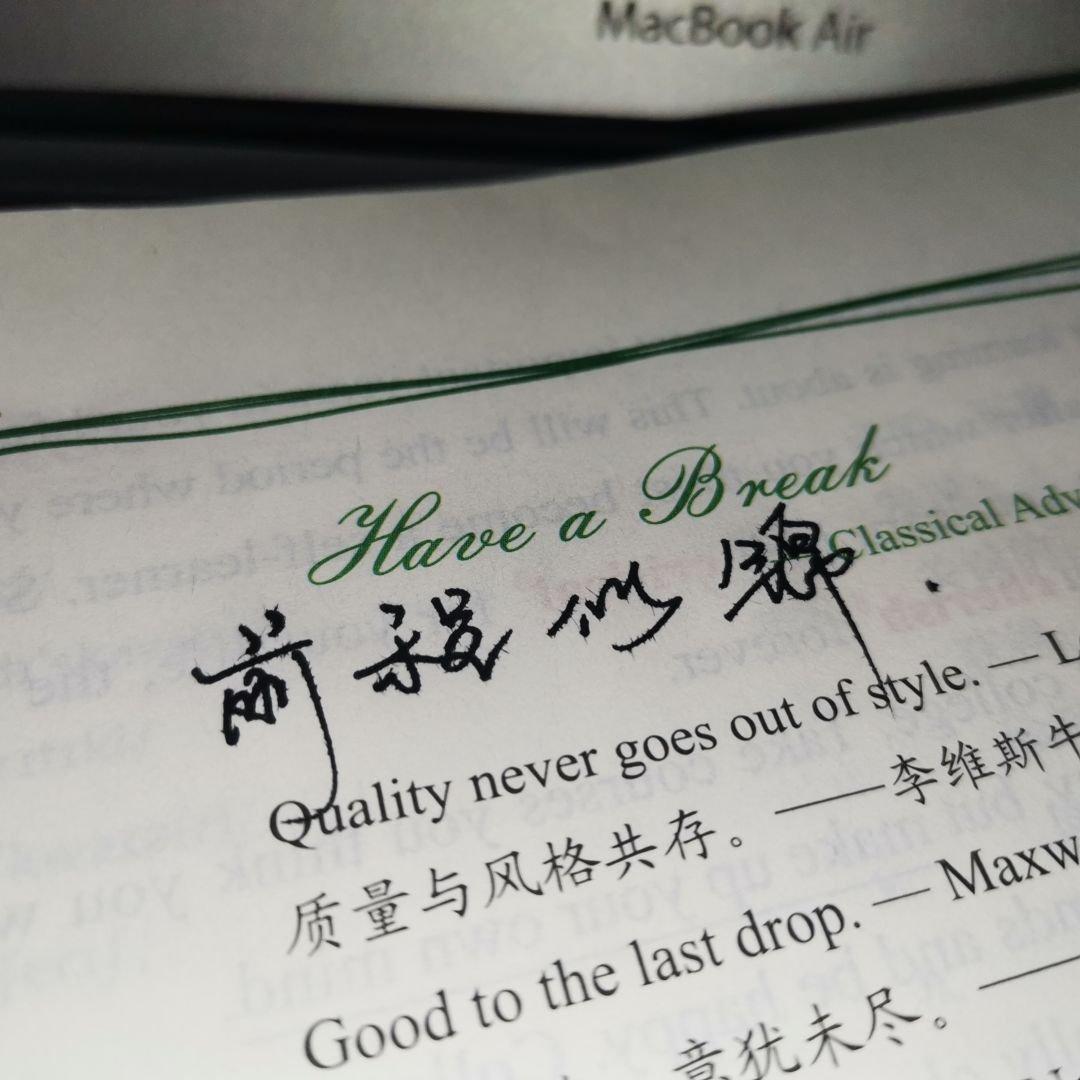 MacBook Air
Have a Break
Classical Adv
前程似锦.
Quality never goes out of style. — L
质量与风格共存。——李维斯牛
Good to the last drop. — Maxw
意犹未尽。——